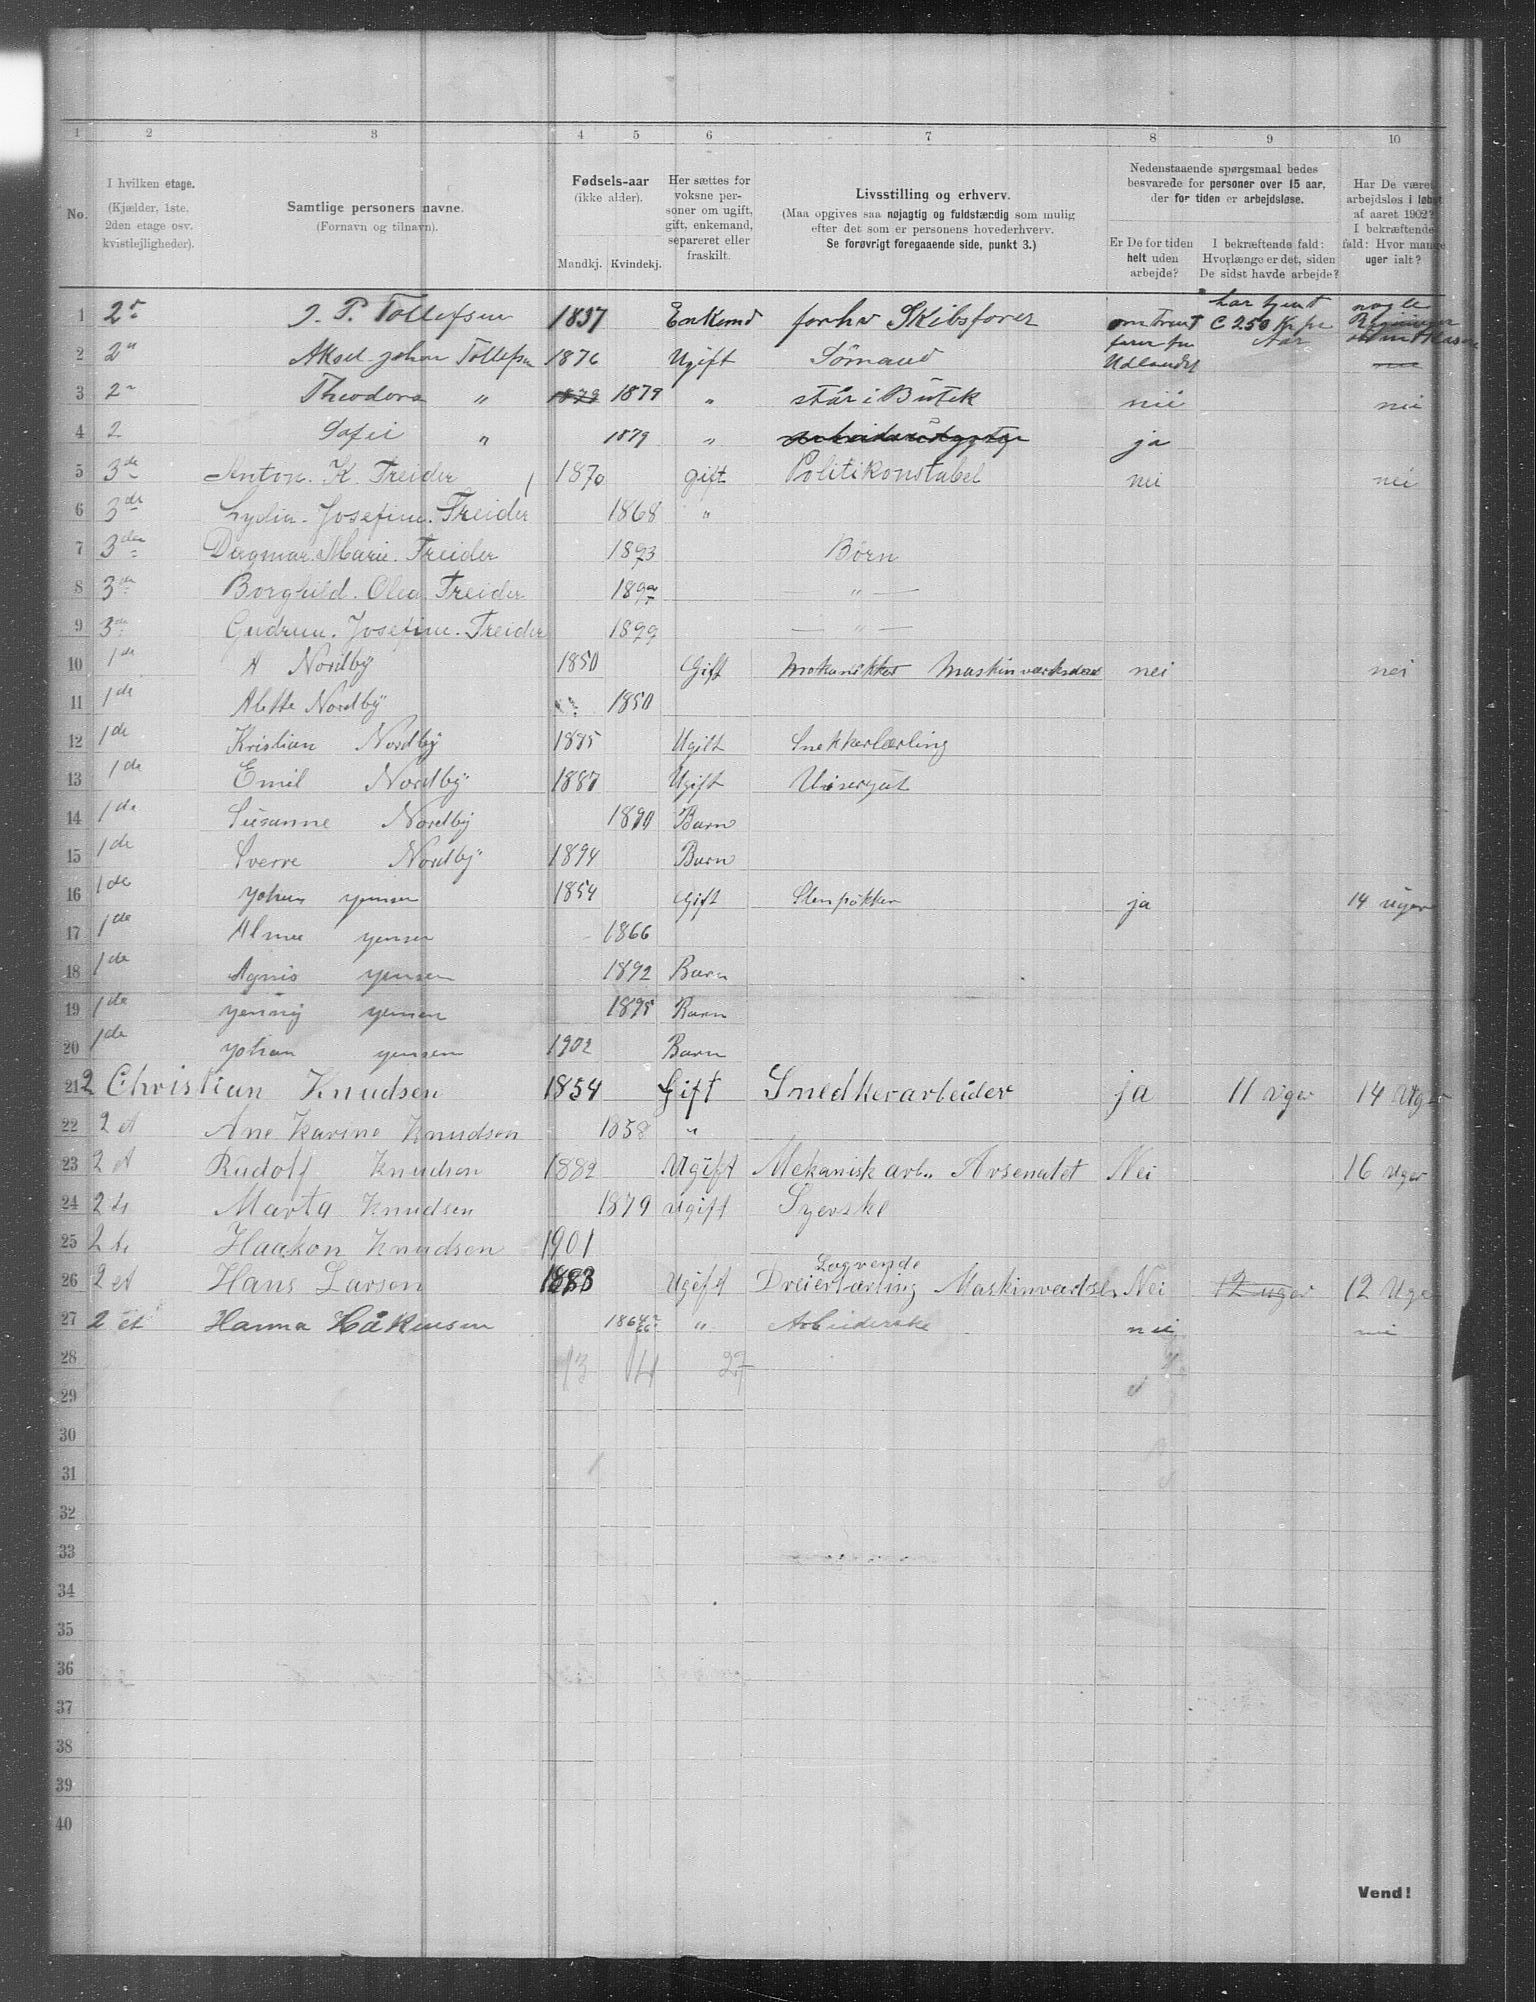 1 2 3 4 5 6 7 8 9 10
No.
I hvilken etage. (Kjælder, 1ste. 2den etage osv. kvistlejligheder).
Samtlige personers navne. (Fornavn og tilnavn).
Fødsels-aar (ikke alder). Mandkj. Kvindekj.
Her sættes for voksne personer om ugift, gift, enkemand, separeret eller fraskilt.
Livsstilling og erhverv. (Maa opgives saa nøjagtig og fuldstændig som mulig efter det som er personens hovederhverv. Se forøvrigt foregaaende side, punkt 3.)
Nedenstaaende spørgsmaal bedes besvarede for personer over 15 aar, der for tiden er arbejdsløse.
Er De for tiden helt uden arbejde?
I bekræftende fald: Hvorlænge er det, siden De sidst havde arbejde?
Har De været arbejdsløs i løbet af aaret 1902? I bekræftende fald: Hvor mange uger ialt?
1 2 J. P. Tollefsen 1837 Enkemd forhv Skibsfører omtrent har tjent C 250 Kr pr Aar nogle
2 2 Aksel Johan Tollefsen 1876 Ugift Sömand farer paa Udlandet
3 2 Theodora " 1879 1879 " står i Butik nei nei
4 2 Sofie " 1879 " ja
5 3de Anton. K. Treider 1870 gift Politikonstabel nei nei
6 3de Lydia. Josefine. Treider 1868 "
7 3den Dagmar. Marie. Treider 1893 Børn
8 3de Borghild. Olea. Treider 189 — " —
9 3de Gudrun. Josefine. Treider 1899 — " —
10 1de A Nordby 1850 Gift Mekanikker Maskinværksded nei nei
11 1de Alette Nordby 1850
12 1de Kristian Nordby 1885 Ugift Snekkerlærling
13 1de Emil Nordby 1887 Ugift Visergut
14 1de Susanne Nordby 1890 Barn
15 1de Sverre Nordby 1894 Barn
16 1de Johan Jensen 1854 Gift Stenpikker ja 14 uger
17 1de Alma Jensen 1866
18 1de Agnis Jensen 1892 Barn
19 1de Jenny Jensen 1895 Barn
20 1de Johan Jensen 1902 Barn
21 2 Christian Knudsen 1854 Gift Snedkerarbeider ja 11 Uger 14 Uger
22 2 et Ane Karine Knudsen 1858 "
23 2 et Rudolf Knudsen 1882 Ugift Mekanisk arb. Arsenalet Nei 16 Uger
24 2 et Marta Knudsen 1879 Ugift Syerske
25 2 et Haakon Knudsen 1901
26 2 et Hans Larsen 1883 Ugift Dreierlærling Maskinværdsk Nei 12 uger 12 Uge
27 2 et Hanna Håkensen 186 " Arbeiderske nei nei
28 13 14 27
29
30
31
32
33
34
35
36
37
38
39
40
Vend!